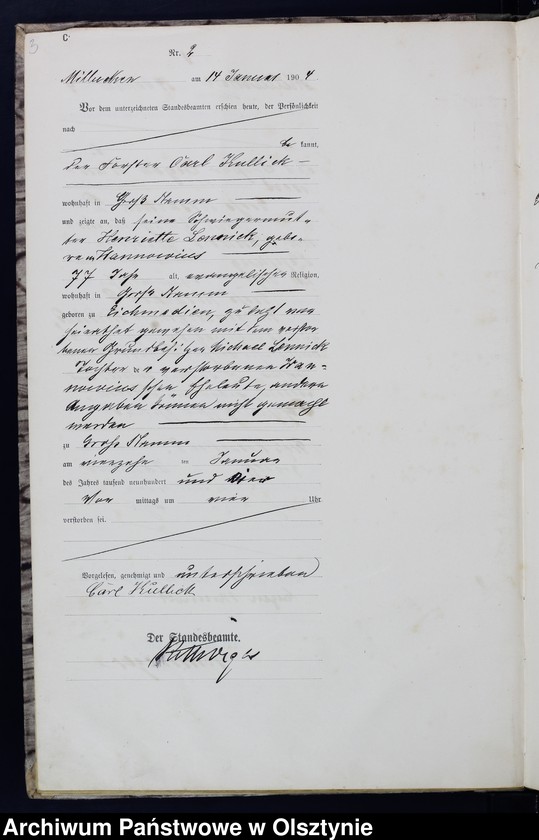 3
C.
Nr. 2
am 14 Januar 1904.
Vor dem unterzeichneten Standesbeamten erschien heute, der Persönlichkeit
nach
be kannt,
der Förster Carl Kullick
wohnhaft in Groß Nemm
und zeigte an, daß seine Schwiegermut-
ter Henriette Lonnick, gebo-
rene Hannowius
77 Jahr alt, evangelischer Religion,
wohnhaft in Groß Nemm
geboren zu Eichmedien, zuletzt ver
heirathet gewesen mit dem verstor
benen Grundbesitzer Michael Lonnick
Tochter der verstorbenen Han-
nowius'schen Eheleute, andere
Angaben können nicht gemacht
werden
zu Groß Nemm
am vierzehn ten Januar
des Jahres tausend neunhundert und vier
Vor mittags um vier Uhr
verstorben sei.
Vorgelesen, genehmigt und unterschrieben
Carl Kullick
Der Standesbeamte.
Archiwum Państwowe w Olsztynie